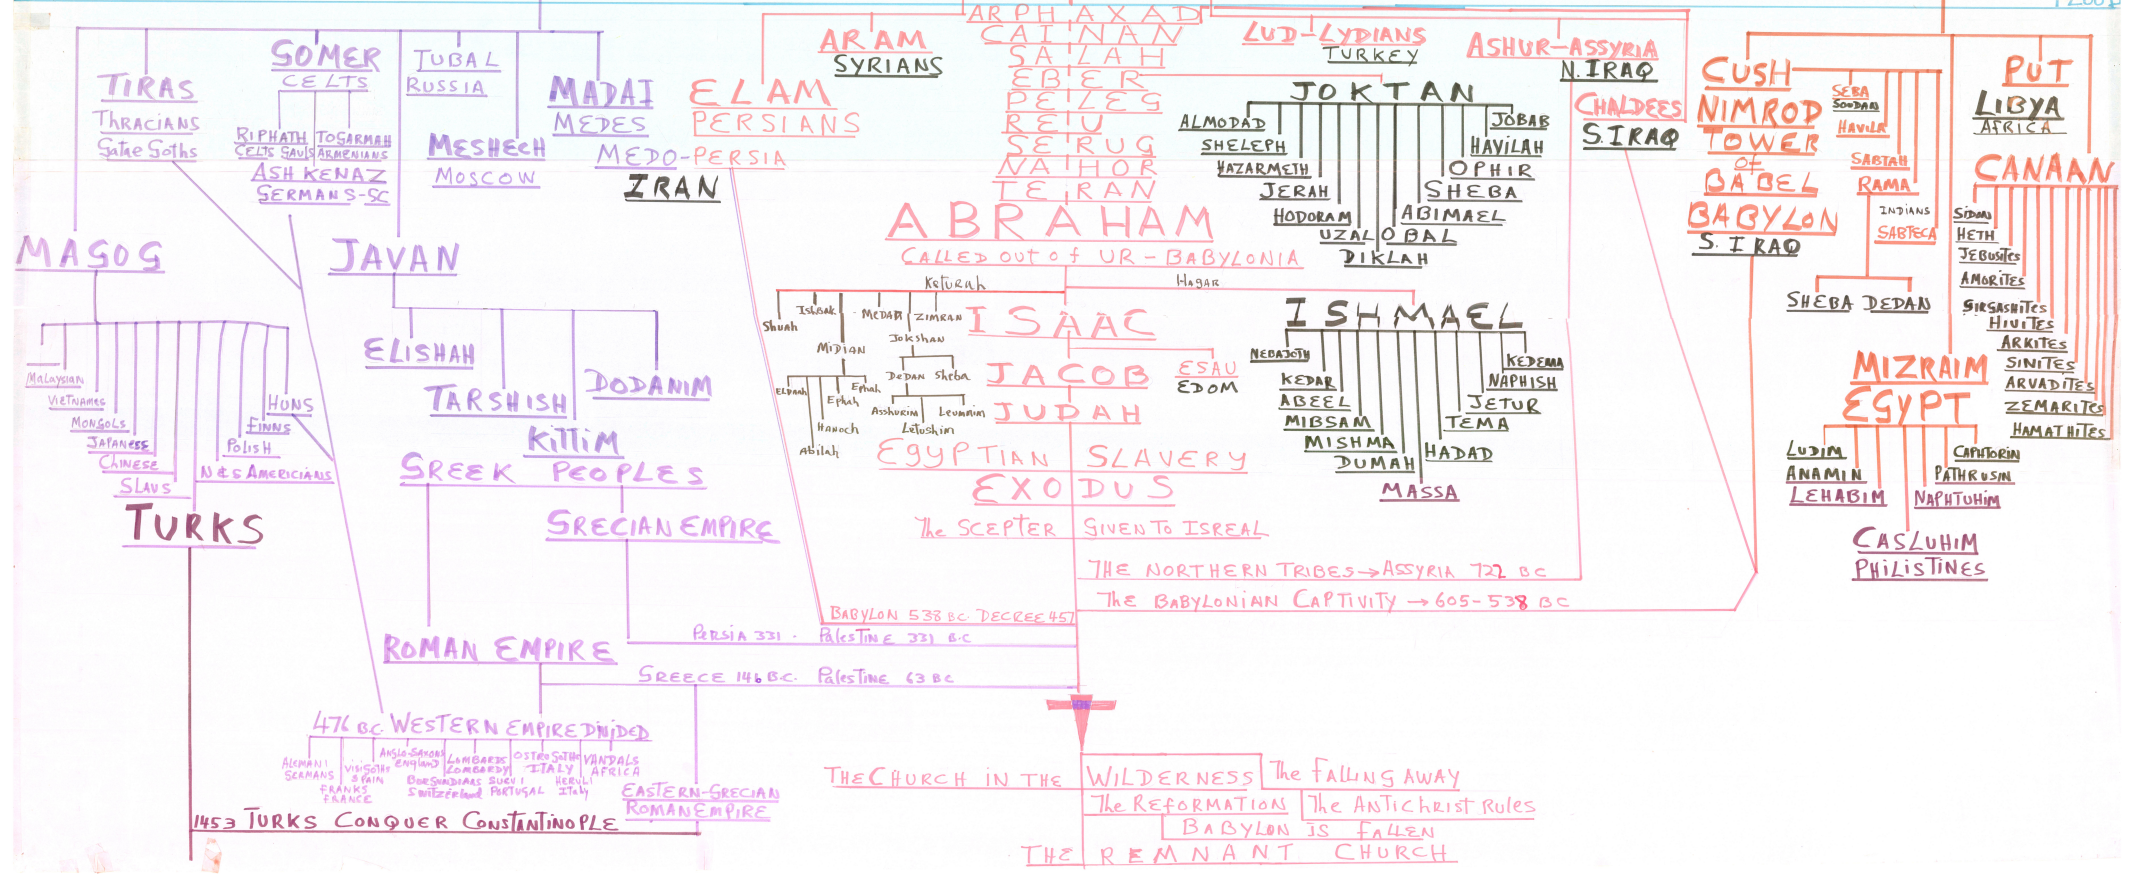 TIRAS
THRACIANS
Gatae Goths
GOMER
CELTS
RIPHATH
CELTS GAULS
TOGARMAH
ARMENIANS
ASHKENAZ
GERMANS-SC
TUBAL
RUSSIA
MESHECH
MOSCOW
MADAI
MEDES
MEDO-PERSIA
IRAN
MAGOG
MALAYSIAN
VIETNAMES
MONGOLS
JAPANESE
CHINESE
SLAVS
TURKS
HUNS
FINNS
POLISH
N & S AMERICIANS
JAVAN
ELISHAH
TARSHISH
KITTIM
DODANIM
GREEK PEOPLES
GRECIAN EMPIRE
ROMAN EMPIRE
476 B.C. WESTERN EMPIRE DIVIDED
ALEMANI
GERMANS
FRANKS
FRANCE
VISIGOTHS
SPAIN
ANGLO-SAXONS
ENGLAND
BURGUNDIANS
SWITZERLAND
LOMBARDS
LOMBARDY
SUEVI
PORTUGAL
OSTROGOTHS
ITALY
HERULI
ITALY
VANDALS
AFRICA
EASTERN-GRECIAN
ROMAN EMPIRE
1453 TURKS CONQUER CONSTANTINOPLE
ELAM
PERSIANS
ARAM
SYRIANS
ARPHAXAD
CAINAN
SALAH
EBER
PELEG
REU
SERUG
NAHOR
TERAN
ABRAHAM
CALLED OUT OF UR - BABYLONIA
Keturah
HAGAR
Shuah
Ishbak
MIDIAN
MEDAN
ZIMRAN
Jokshan
DeDAN
Sheba
Asshurim
Letushim
Leummim
ELDAAH
Abidah
HANOCH
Ephah
Ephah
ISAAC
JACOB
ESAU
EDOM
JUDAH
EGYPTIAN SLAVERY
EXODUS
The SCEPTER GIVEN TO ISREAL
THE NORTHERN TRIBES → ASSYRIA 722 BC
The BABYLONIAN CAPTIVITY → 605-538 BC
BABYLON 538 BC. DECREE 457
PERSIA 331 - PALESTINE 331 B.C
GREECE 146 B.C. PALESTINE 63 BC
THE CHURCH IN THE WILDERNESS
The FALLING AWAY
The REFORMATION
The ANTICHRIST RULES
BABYLON IS FALLEN
THE REMNANT CHURCH
LUD-LYDIANS
TURKEY
ASHUR-ASSYRIA
N. IRAQ
CHALDEES
S. IRAQ
JOKTAN
ALMODAD
SHELEPH
HAZARMETH
JERAH
HODORAM
UZAL
DIKLAH
OBAL
ABIMAEL
SHEBA
OPHIR
HAVILAH
JOBAB
ISHMAEL
NEBAJOTH
KEDAR
ABEEL
MIBSAM
MISHMA
DUMAH
MASSA
HADAD
TEMA
JETUR
NAPHISH
KEDEMA
CUSH
NIMROD
TOWER
OF
BABEL
BABYLON
S. IRAQ
SEBA
SOUDAN
HAVILA
SABTAH
RAMA
INDIANS
SABTECA
SHEBA
DEDAN
MIZRAIM
EGYPT
LUDIM
ANAMIN
LEHABIM
CASLUHIM
PHILISTINES
NAPHTUHIM
PATHRUSIN
CAPHTORIN
PUT
LIBYA
AFRICA
CANAAN
SIDON
HETH
JEBUSITES
AMORITES
GIRGASHITES
HIVITES
ARKITES
SINITES
ARVADITES
ZEMARITES
HAMATHITES